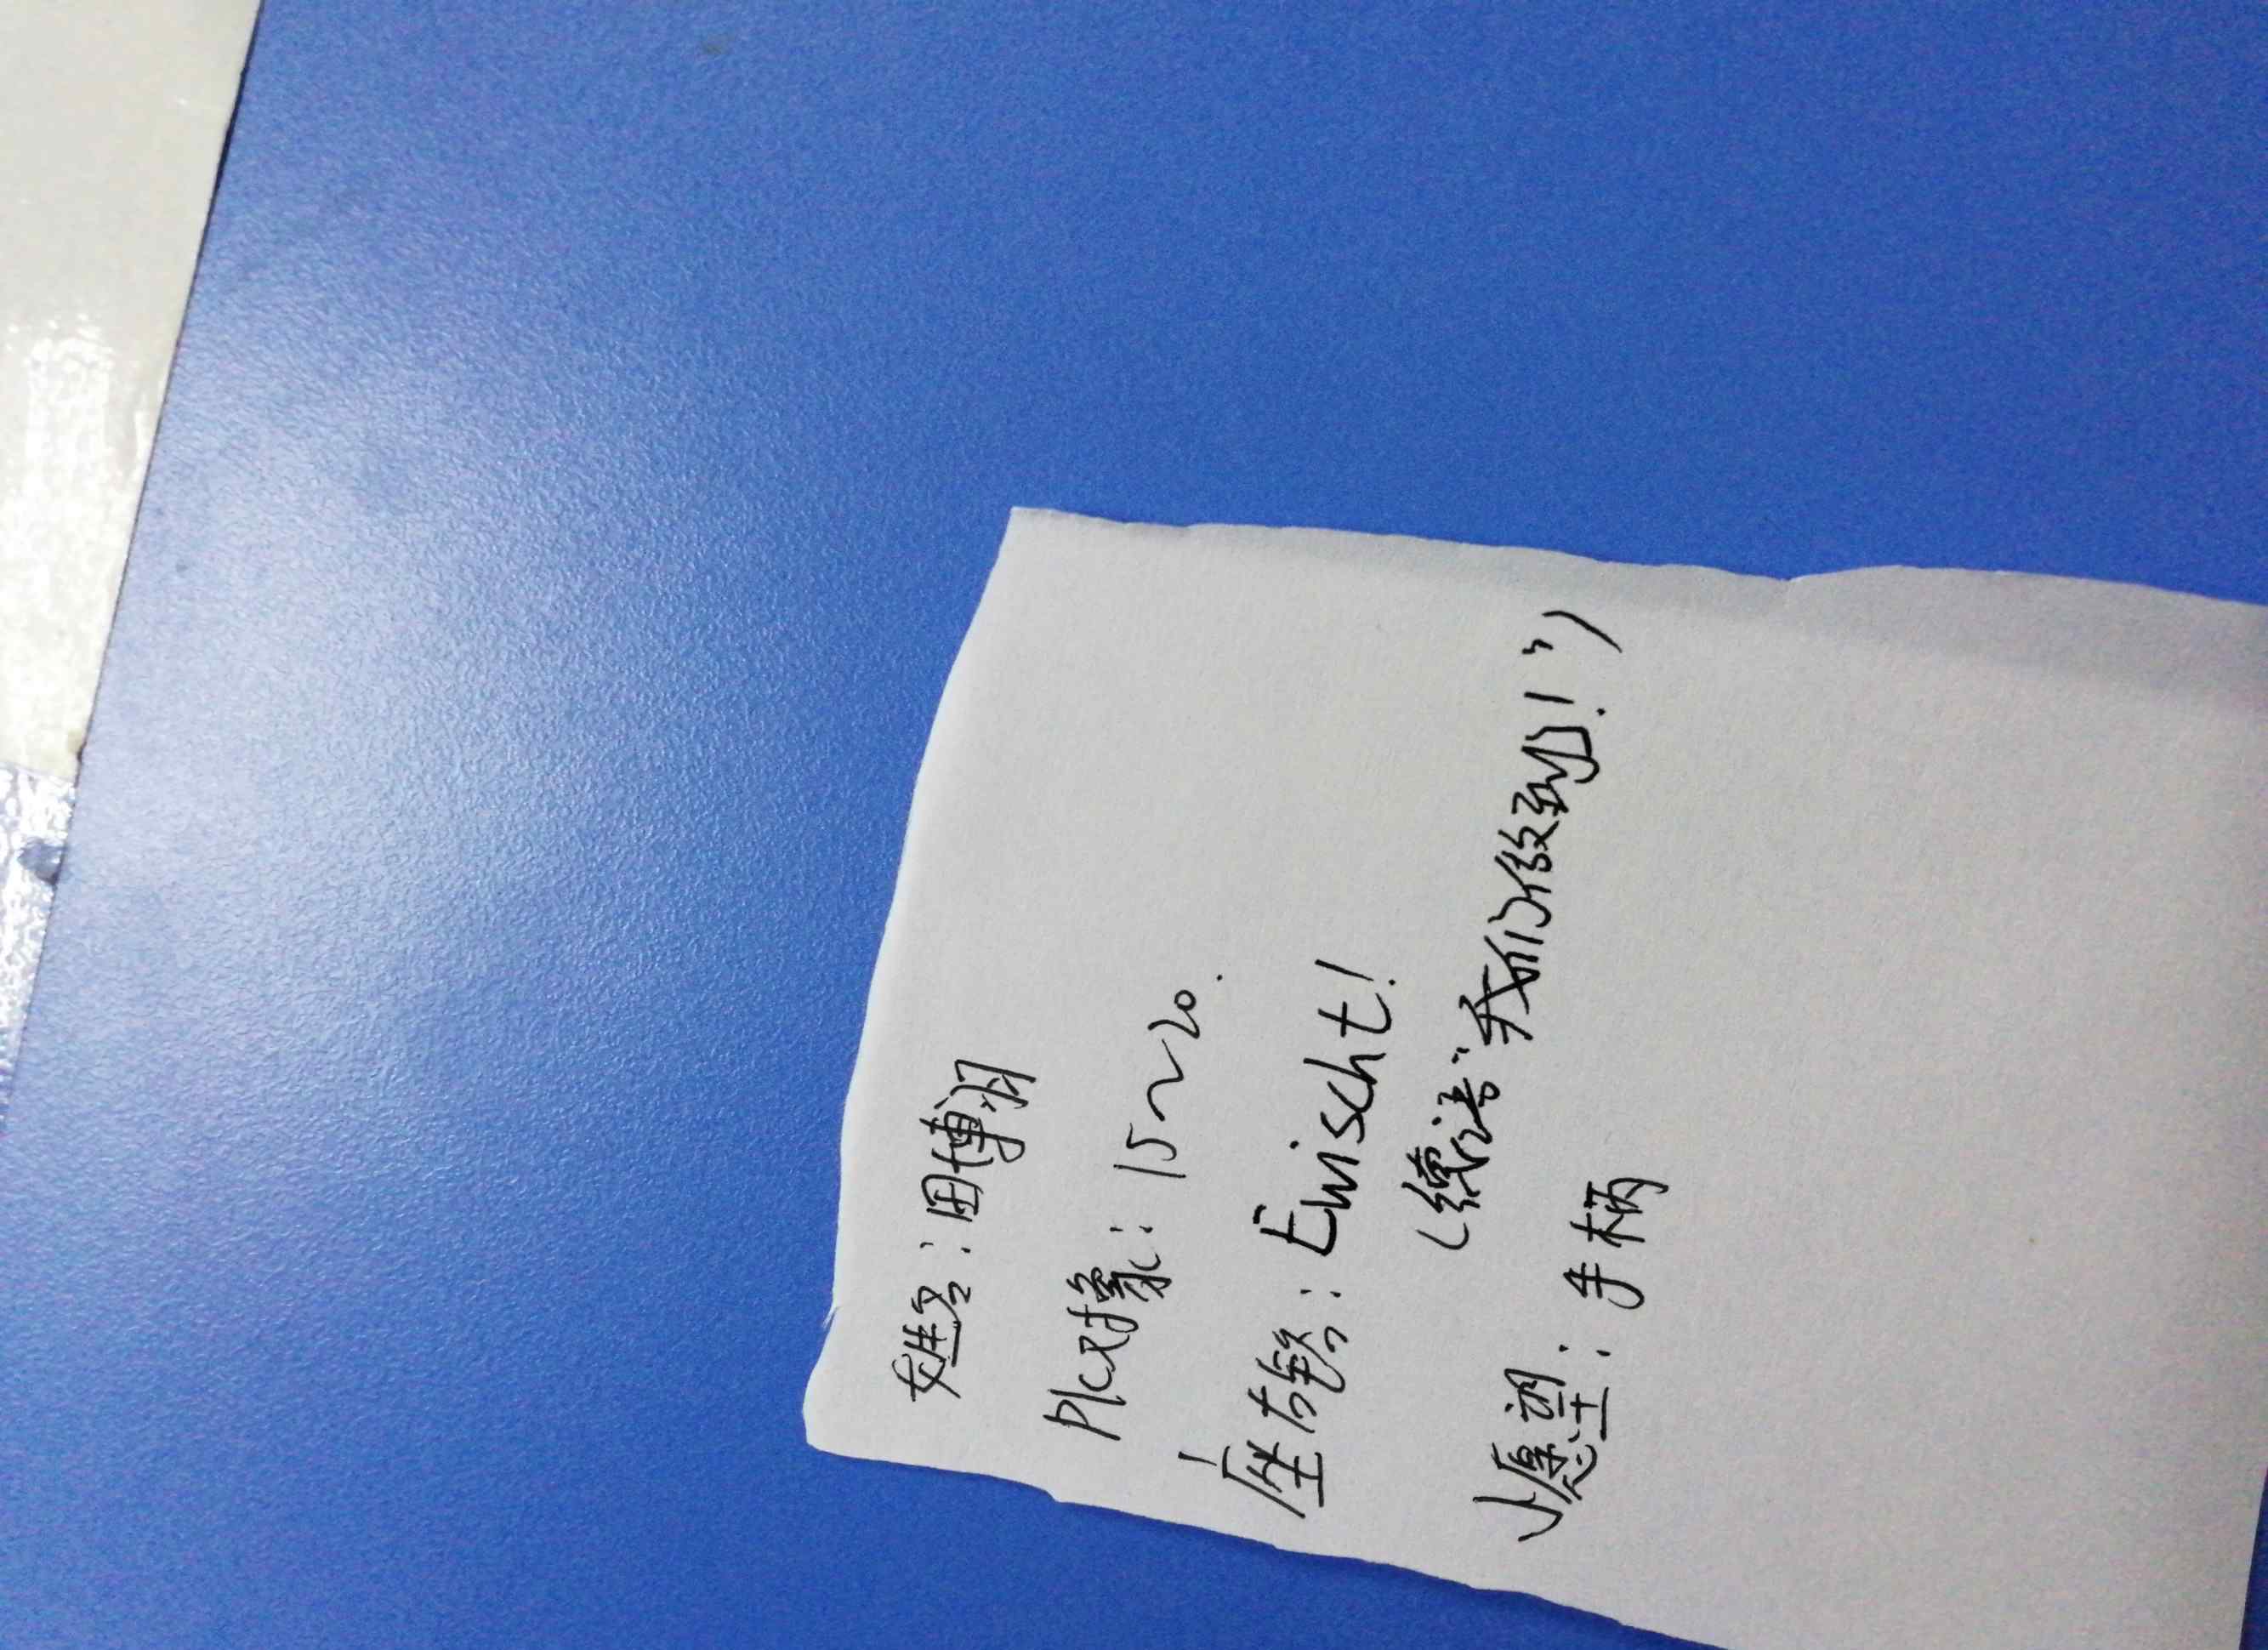 姓名：田博羽
PK对象：15～20.
座右铭：Ewischt!
(德语“我们做到!”)
小愿望：手柄